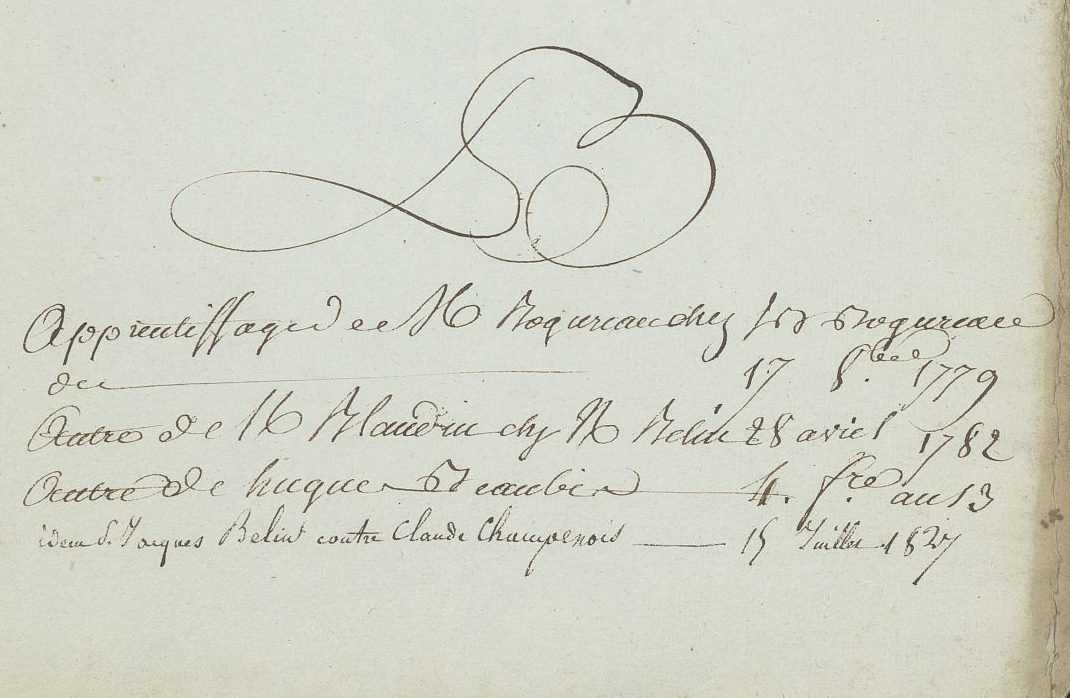 B
Apprentissage de M Boqureau chez les Boqureau
du 17 8.bre 1779
Autre de M Blandin chez M Belin 28 avril 1782
Autre de hugues Beaubis 4. fre an 13
idem S. Jacques Belin contre Claude Champenois 15 Juillet 1827